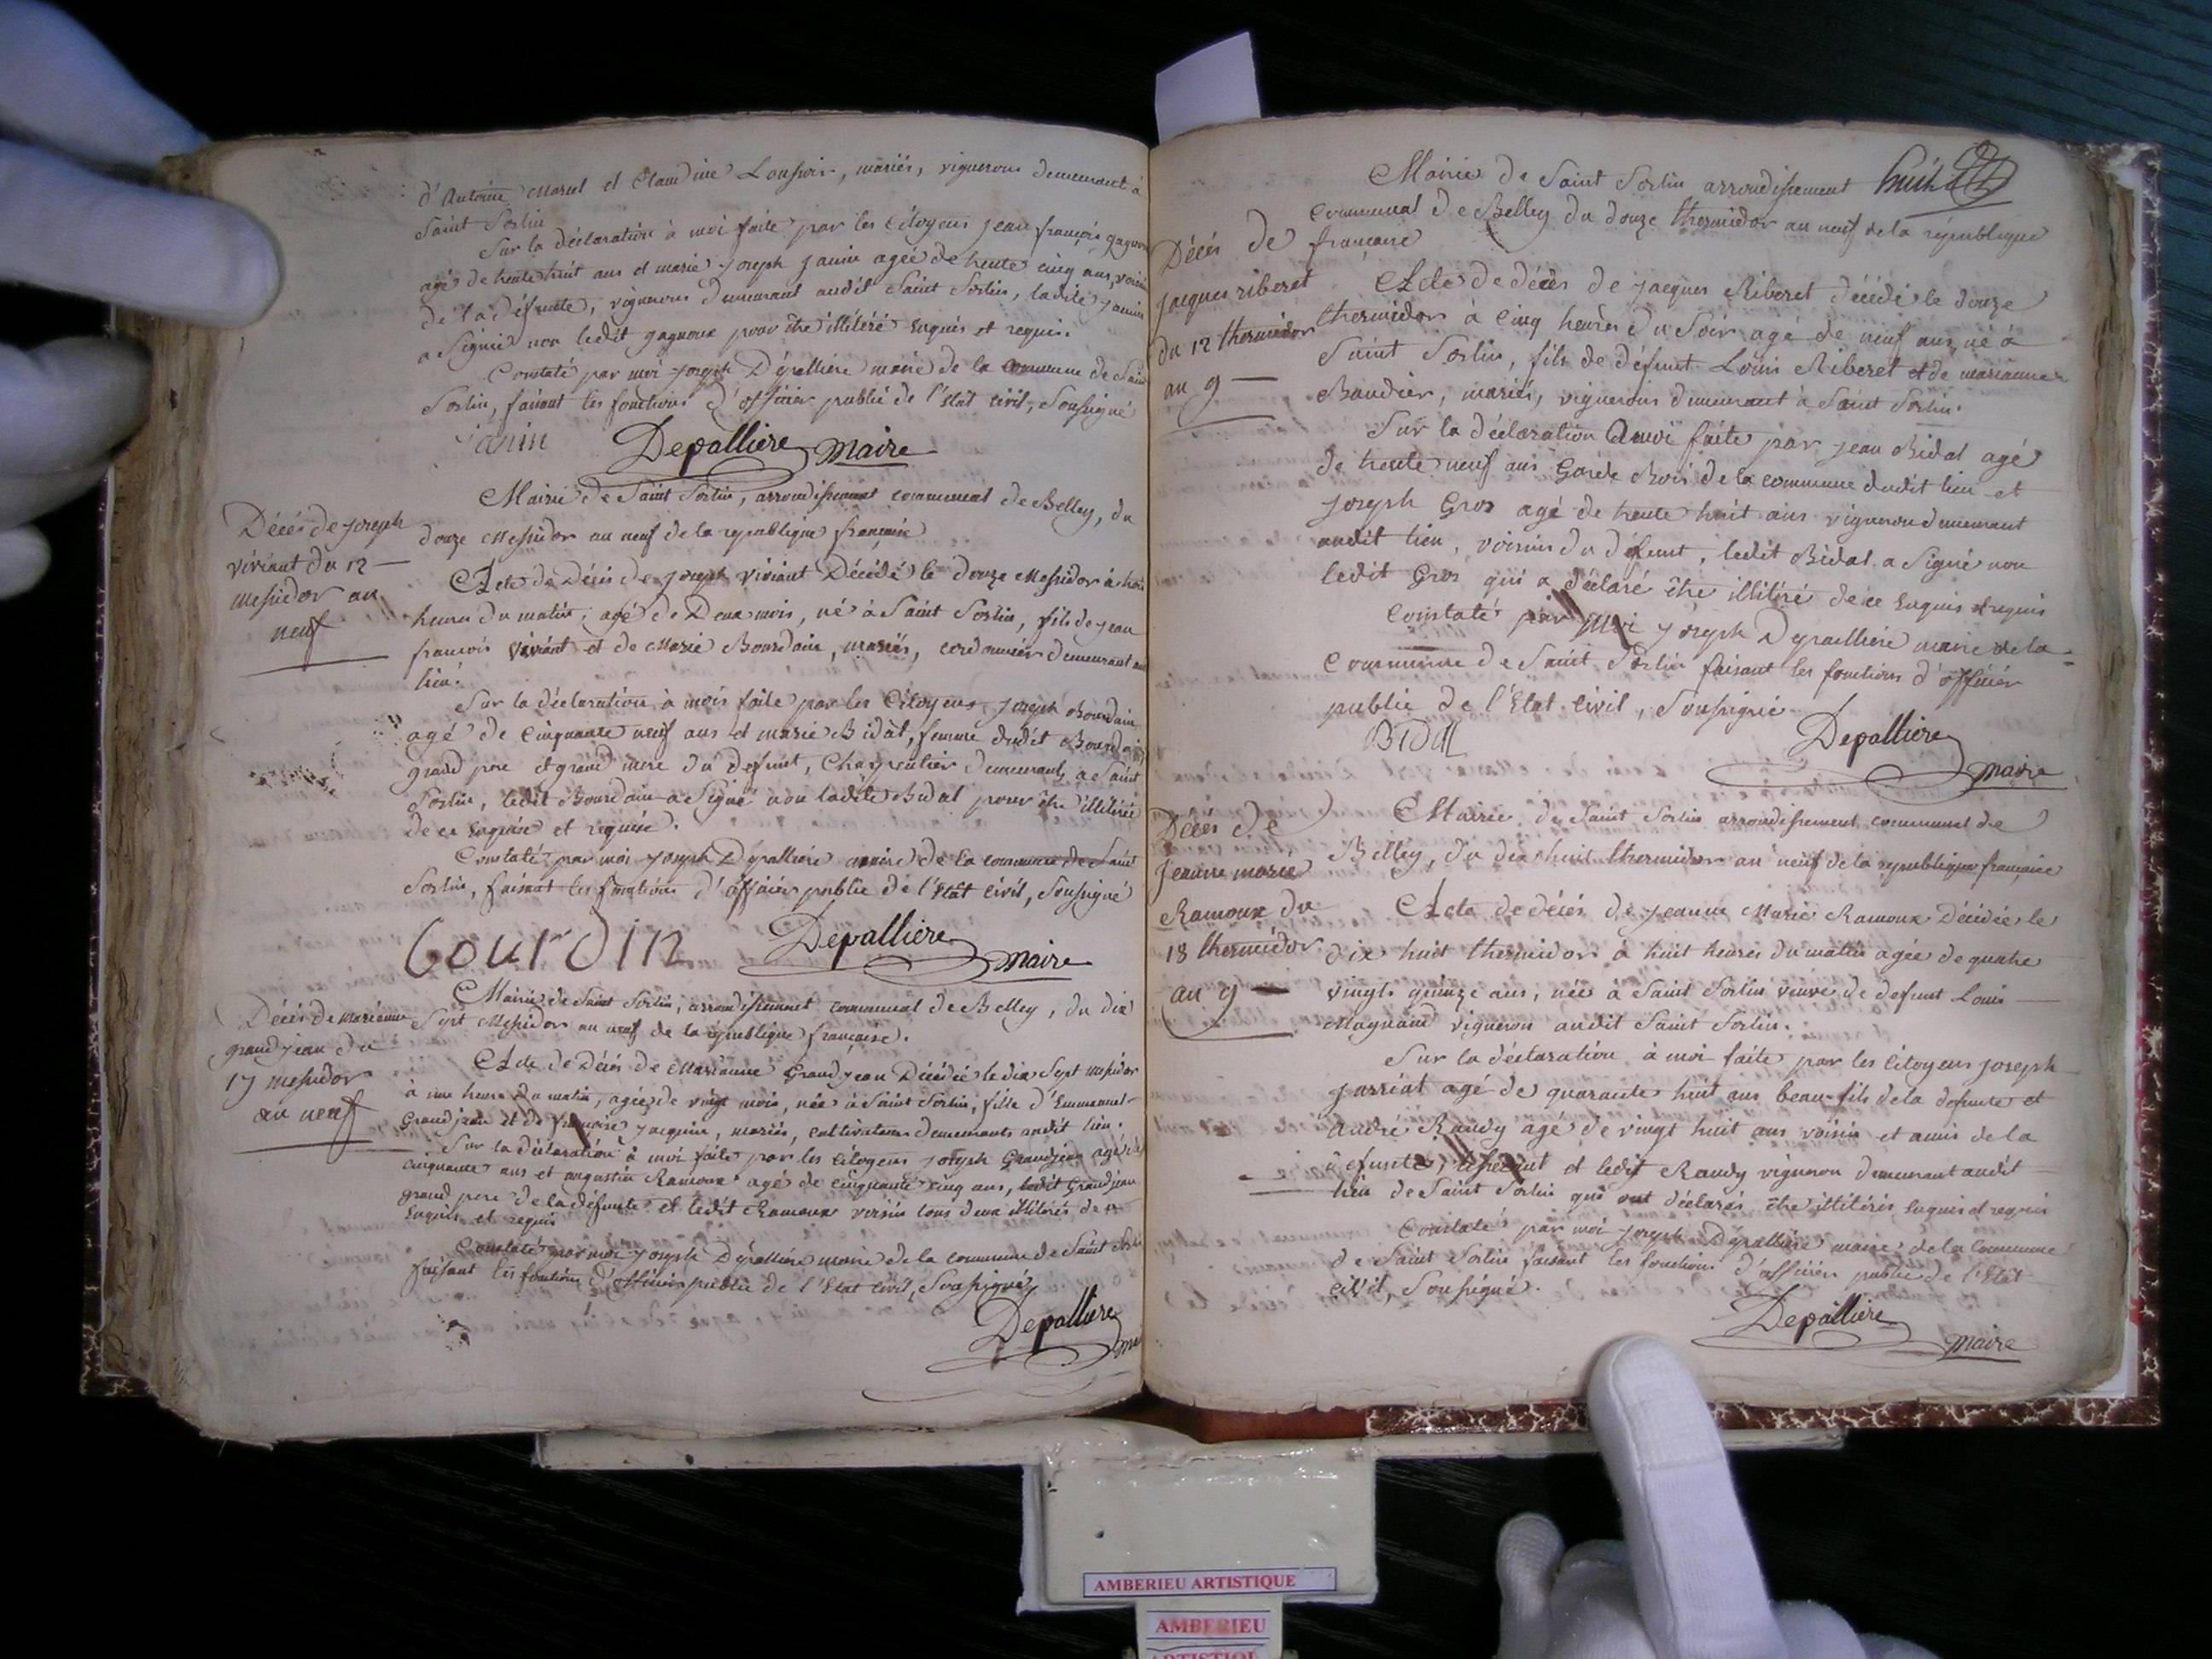 d'Antoine Marcel et Claudine, mariés, vignerons demeurant à
Saint Sorlin
Sur la déclaration à moi faite par les Citoyens jean françois
agé de trente huit ans et marie joseph janin agée de trente cinq ans, voisins
de la défunte, vignerons demeurant audit Saint Sorlin, ladite janin
a Signié non ledit gagnoux pour être illitéré Enquis et requis.
Constaté par moi joseph Dépallière maire de la commune de Saint
Sorlin, faisant les fonctions d'officier public de l'Etat civil, Soussigné
janin Depalliere maire
Mairie de Saint Sorlin, arrondissement communal de Belley, du
douze Messidor an neuf de la republique française
Décés de joseph
viviant du 12
messidor an
neuf
Acte de Décés de joseph viviant Décédé le douze Messidor à
heures du matin, agé de Deux mois, né à Saint Sorlin, fils de jean
francois viviant et de Marie Bourdain, mariés, cordonnier demeurant au
lieu.
Sur la déclaration à mois faite par les Citoyens joseph Bourdain
agé de Cinquante neuf ans et marie Bidat, femme dudit Bourdain
grand pere et grand mere du defunt, Charpentier demeurants a Saint
Sorlin, ledit Bourdain a Signé non ladite Bidal pour être illitérée
de ce Enquise et requise.
Constaté par moi joseph Dépallière maire de la commune de Saint
Sorlin, faisant les fonctions d'officier public de l'Etat civil, Soussigné
bourdin Depalliere maire
Mairie de Saint Sorlin, arrondissement communal de Belley, du dix
Sept Messidor an neuf de la république française.
Décés de mariannne
grand jean du
17 messidor
an neuf
Acte de Décés de Marianne Grand jean Décédée le dix Sept messidor
à une heure du matin, agée de vingt mois, née à Saint Sorlin, fille d'Emmanuel
Grandjean et de françoise jacquin, mariés, cultivateurs demeurants audit lieu.
Sur la déclaration à moi faite par les Citoyens joseph Grandjean agé de
cinquante ans et augustin Ramoux agé de cinquante cinq ans, ledit Grandjean
grand pere de la défunte et ledit Ramoux voisin tous deux illitérés, de ce
Enquis et requis
Constaté par moi joseph Dépallière maire de la commune de Saint Sorlin
faisant les fonctions d'officier public de l'Etat civil, Soussigné
Depalliere
Mairie de Saint Sorlin arrondissement huit
communal de Belley du douze thermidor an neuf de la république
française
Décés de
jacques riberet
du 12 thermidor
an 9
Acte de décès de jacques Riberet décédé le douze
thermidor à cinq heures du Soir agé de neuf ans, né à
Saint Sorlin, fils de défunt Louis Riberet et de marianne
Baudier, mariés, vignerons demeurant à Saint Sorlin.
Sur la déclaration à moi faite par jean Bidal agé
de trente neuf ans Garde Bois de la commune dudit lieu et
joseph Gros agé de trente huit ans vigneron demeurant
audit lieu, voisins du défunt, ledit Bidal a Signé non
ledit Gros qui a déclaré être illitéré de ce Enquis et requis
Constaté par moi joseph Dépallière maire de la
Commune de Saint Sorlin faisant les fonctions d'officier
public de l'Etat civil, Soussigné
Bidal Depalliere
maire
Mairie de Saint Sorlin arrondissement communal de
Belley, du dix huit thermidor an neuf de la republique française
Décés de
jeanne marie
Ramoux du
18 thermidor
an 9
Acte de décés de jeanne Marie Ramoux Décédée le
dix huit thermidor à huit heures du matin agée de quatre
vingts quinze ans, née à Saint Sorlin veuve de defunt Louis
Magnand vigneron audit Saint Sorlin.
Sur la déclaration à moi faite par les Citoyens joseph
jarriat agé de quarante huit ans beau-fils de la defunte et
andré Raudy agé de vingt huit ans voisin et amis de la
défunte, et ledit Raudy vigneron demeurant audit
lieu de Saint Sorlin qui ont déclarés être illitérés Enquis et requis
Constaté par moi joseph Dépallière maire de la Commune
de Saint Sorlin faisant les fonctions d'officier public de l'Etat
civil, Soussigné.
Depalliere
maire
AMBERIEU ARTISTIQUE
AMBERIEU
ARTISTIQUE